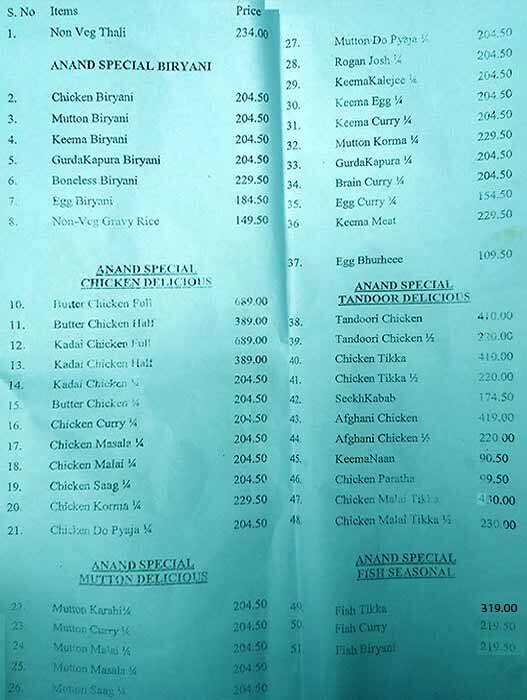 S. No Items Price
1. Non Veg Thali 234.00
ANAND SPECIAL BIRYANI
2. Chicken Biryani 204.50
3. Mutton Biryani 204.50
4. Keema Biryani 204.50
5. GurdaKapura Biryani 204.50
6. Boneless Biryani 229.50
7. Egg Biryani 184.50
8. Non-Veg Gravy Rice 149.50
ANAND SPECIAL
CHICKEN DELICIOUS
10. Butter Chicken Full 689.00
11. Butter Chicken Half 389.00
12. Kadai Chicken Full 689.00
13. Kadai Chicken Half 389.00
14. Kadai Chicken ¼ 204.50
15. Butter Chicken ¼ 204.50
16. Chicken Curry ¼ 204.50
17. Chicken Masala ¼ 204.50
18. Chicken Malai ¼ 204.50
19. Chicken Saag ¼ 204.50
20. Chicken Korma ¼ 229.50
21. Chicken Do Pyaja ¼ 204.50
ANAND SPECIAL
MUTTON DELICIOUS
22. Mutton Karahi¼ 204.50
23. Mutton Curry ¼ 204.50
24. Mutton Malai ¼ 204.50
25. Mutton Masala ¼ 204.50
26. Mutton Saag ¼ 204.50
27. Mutton Do Pyaja ¼ 204.50
28. Rogan Josh ¼ 204.50
29. KeemaKalejee ¼ 204.50
30. Keema Egg ¼ 204.50
31. Keema Curry ¼ 204.50
32. Mutton Korma ¼ 229.50
33. GurdaKapura ¼ 204.50
34. Brain Curry ¼ 204.50
35. Egg Curry ¼ 154.50
36 Keema Meat 229.50
37. Egg Bhurheee 109.50
ANAND SPECIAL
TANDOOR DELICIOUS
38. Tandoori Chicken 410.00
39. Tandoori Chicken ½ 220.00
40. Chicken Tikka 410.00
41. Chicken Tikka ½ 220.00
42. SeekhKabab 174.50
43. Afghani Chicken 419.00
44. Afghani Chicken ½ 220.00
45. KeemaNaan 90.50
46. Chicken Paratha 99.50
47. Chicken Malai Tikka 430.00
48. Chicken Malai Tikka ½ 230.00
ANAND SPECIAL
FISH SEASONAL
49. Fish Tikka 319.00
50. Fish Curry 219.50
51. Fish Biryani 219.50